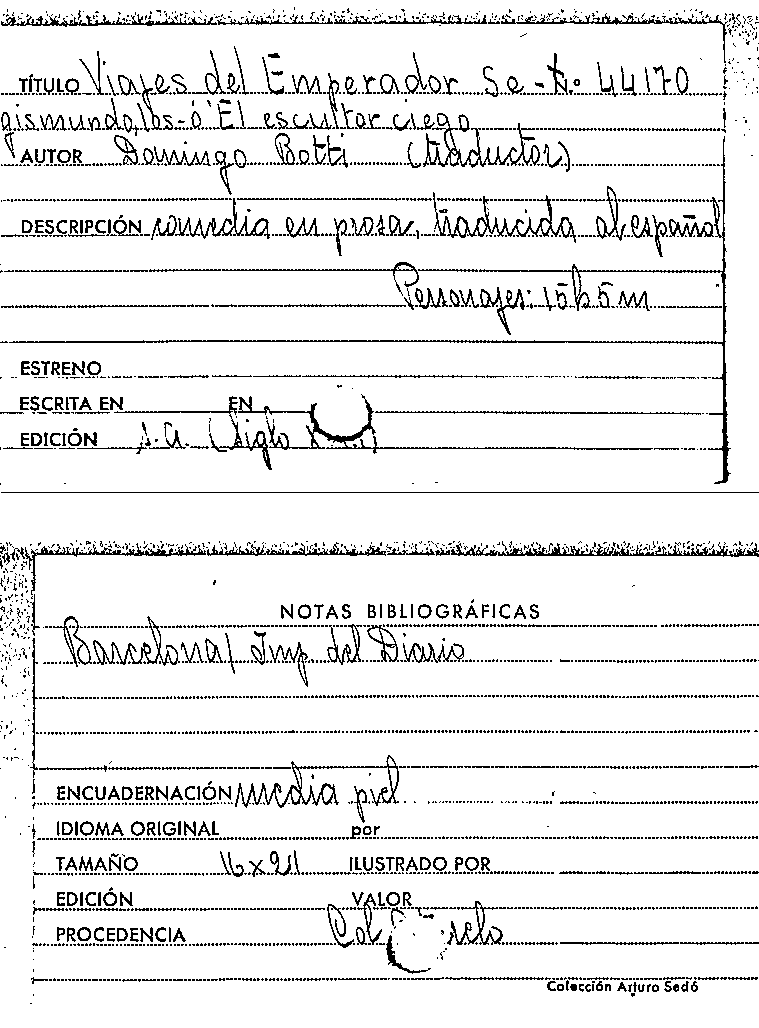 TÍTULO Viajes del Emperador Se- N.º 44170
gismundo, los-ó "El escultor ciego
AUTOR Domingo Botti (traductor)
DESCRIPCIÓN comedia en prosa, traducida al español
Personajes: 15h 5m
ESTRENO
ESCRITA EN EN
EDICIÓN s.a. (Siglo
NOTAS BIBLIOGRÁFICAS
Barcelona/ Imp. del Diario
ENCUADERNACIÓN media piel
IDIOMA ORIGINAL por
TAMAÑO 16x21 ILUSTRADO POR
EDICIÓN VALOR
PROCEDENCIA Col
Colección Arturo Sedó